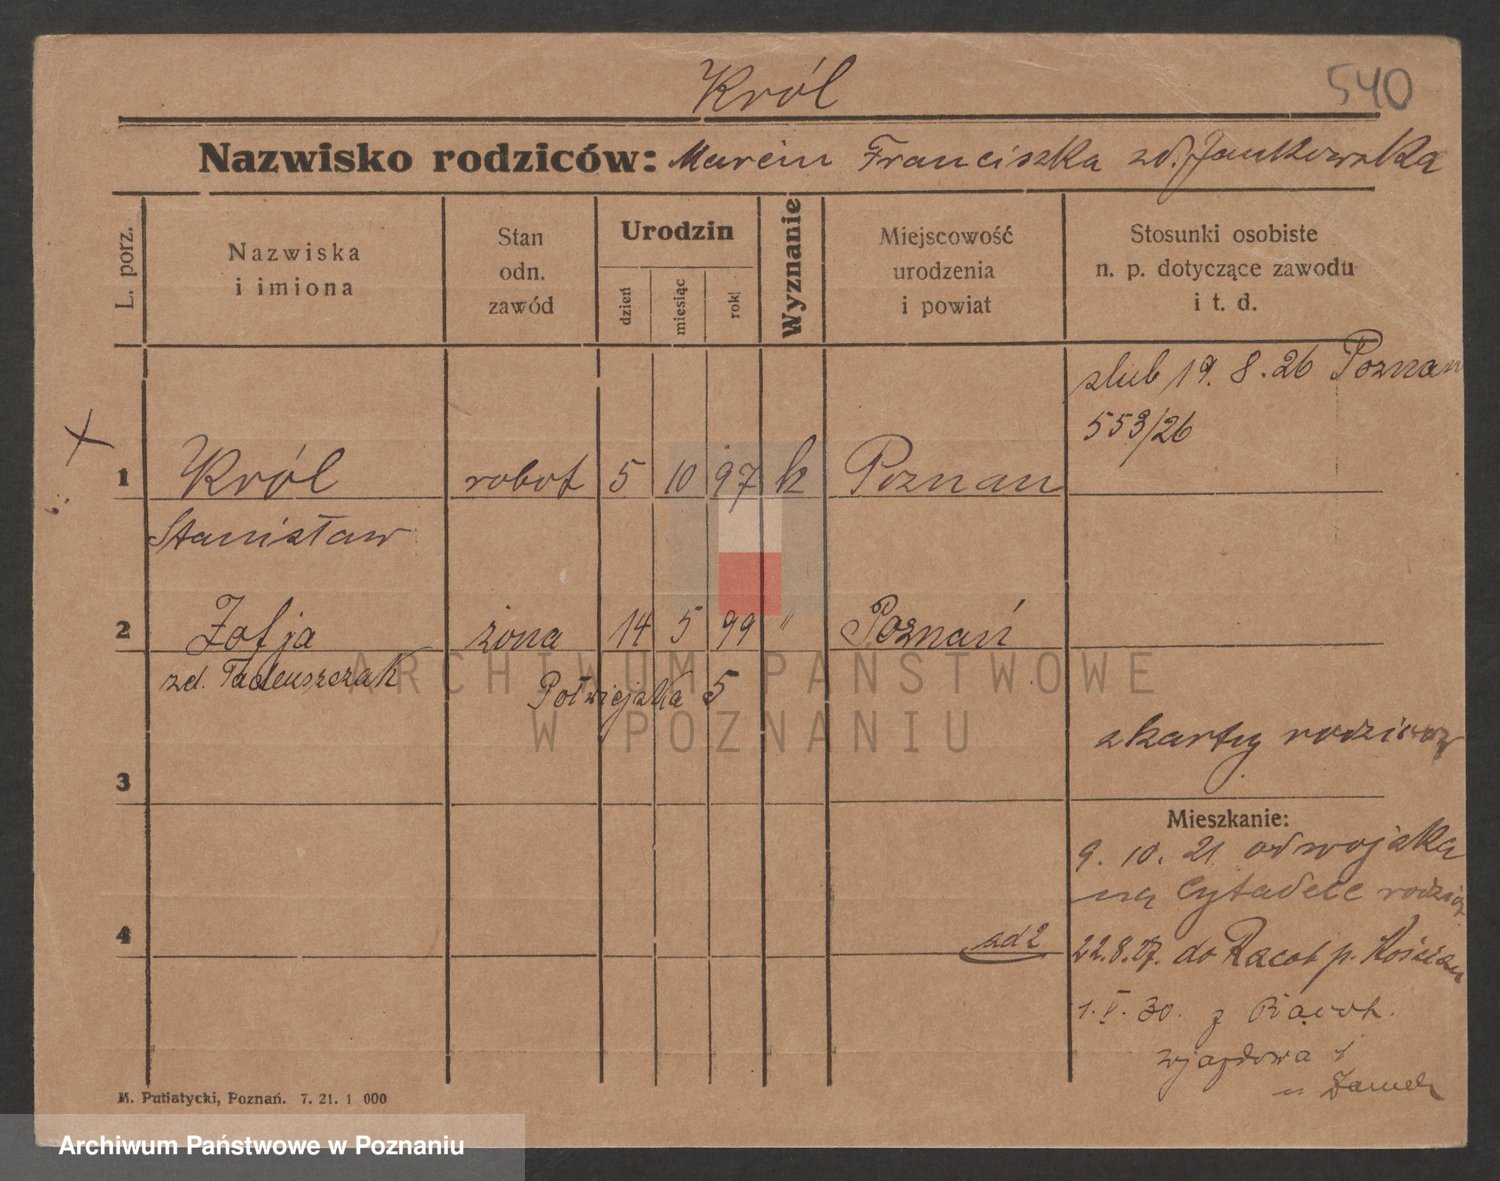 Król
540
Nazwisko rodziców: Marcin Franciszka zd. Jankowska
L. porz.
Nazwiska
i imiona
Stan
odn.
zawód
Urodzin
dzień
miesiąc
rok
Wyznanie
Miejscowość
urodzenia
i powiat
Stosunki osobiste
n. p. dotyczące zawodu
i t. d.
slub 19. 8. 26 Poznan
553/26
1 Król robot 5 10 97 k Poznan
Stanisław
2 Zofja żona 14 5 99 " Poznań
zd. Tadeuszczak
Półwiejska 5
z karty rodziców
3
Mieszkanie:
9. 10. 21 od wojska
na Cytadele
4
ad 2
22.8.27. do Racot p. Kościan
1. V. 30. z Racot.
wjazdowa 1
Zamek
M. Putiatycki, Poznań. 7. 21. 1 000
ARCHIWUM PAŃSTWOWE
W POZNANIU
Archiwum Państwowe w Poznaniu